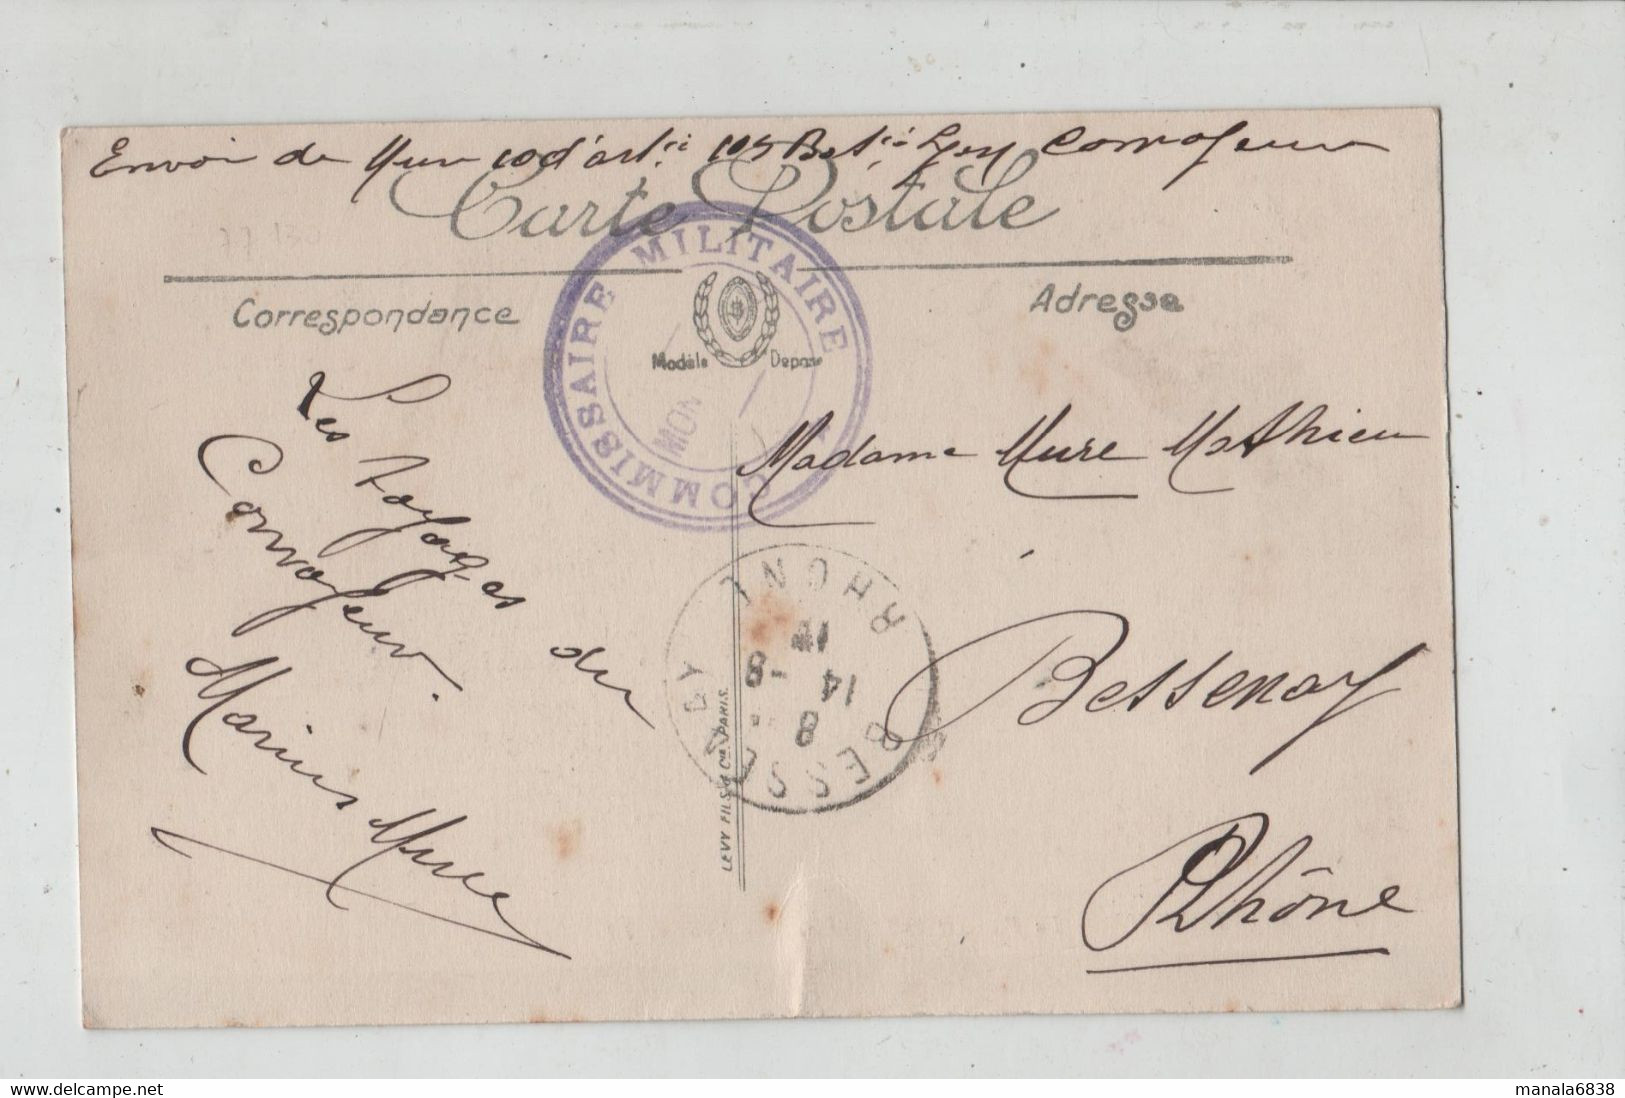 Envoi de Mure 10 d'art.ie 105 Bat.ie Lyon Convoyeur
Carte Postale
77 130
Correspondance
Adresse
COMMISSAIRE MILITAIRE
MON
Modèle Déposé
Les Voyages du
Convoyeur.
Marius Mure
Madame Mure Mathieu
Bessenay
Rhône
BESSENAY RHONE
8 -8
14
LEVY FILS & Cie. PARIS.
manala6838